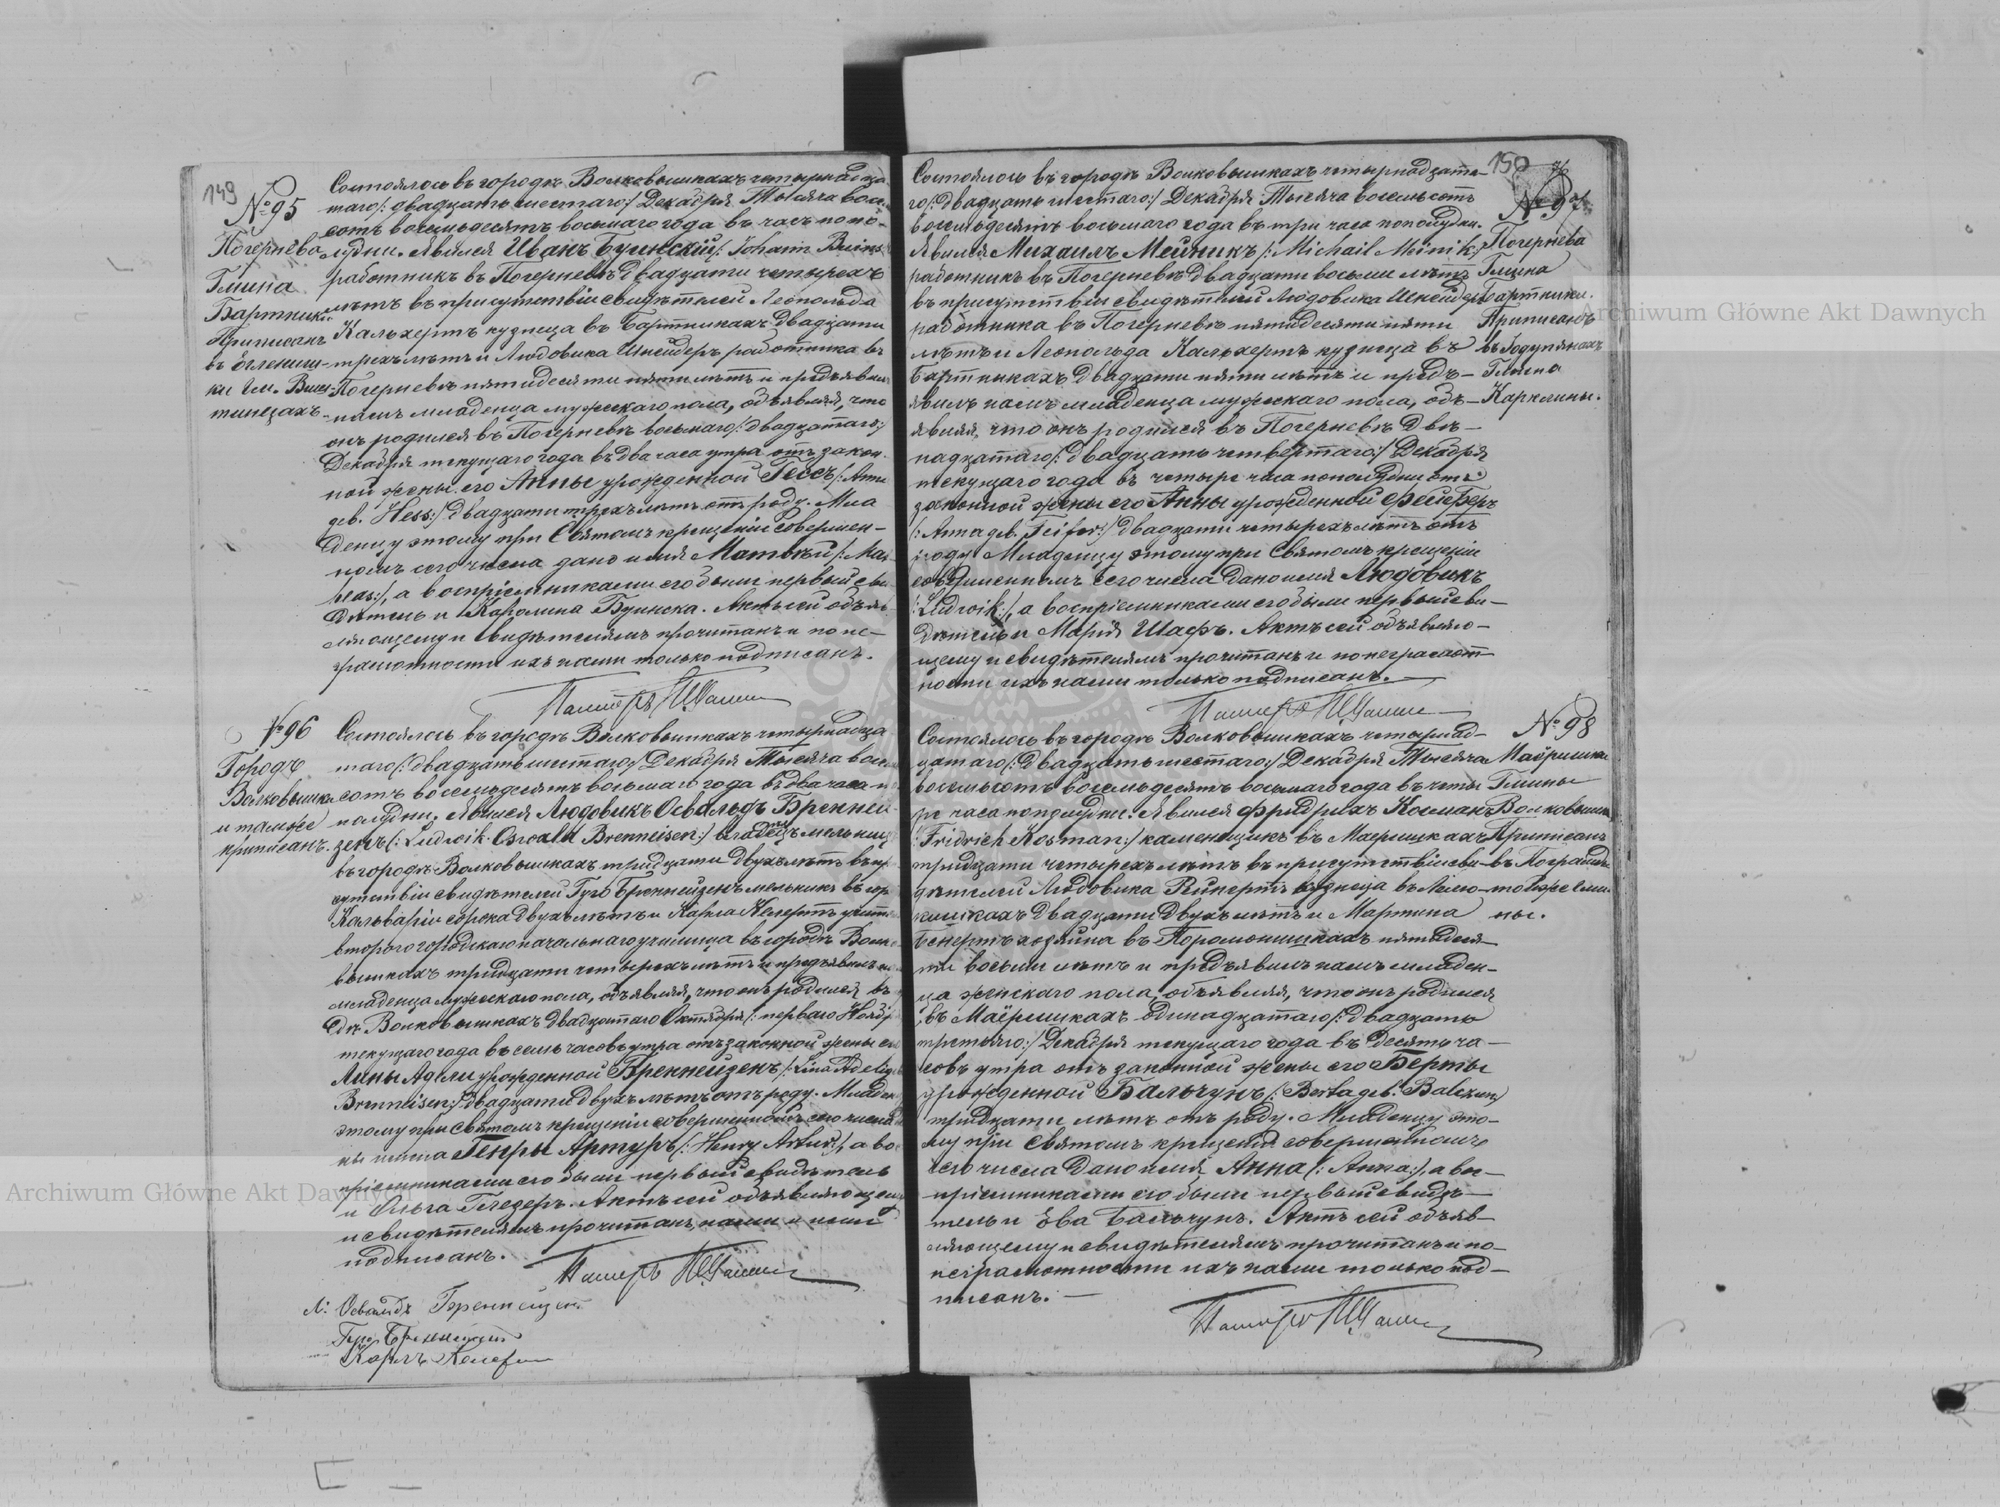 149
№ 95
Погернево
Гмина
Бартники
Приписанъ
в Оглениш-
ки гм. Выш-
тынецахъ
Состоялось въ городѣ Волковышкахъ четырнадца
таго /: двадцать шестаго :/ Декабря Тысяча восе
сотъ восемьдесятъ восьмаго года въ часъ попо-
лудни. Явился Иванъ Буинскій /: Johann Buins
работникъ въ Погерневѣ двадцати четырехъ
лѣтъ въ присутствіи свидѣтелей Леопольда
Кальхертъ кузнеца въ Бартникахъ двадцати
трехъ лѣтъ и Людовика Шнейдеръ работника въ
Погерневѣ пятидесяти пяти лѣтъ и предъявил
намъ младенца мужескаго пола, объявляя, что
онъ родился въ Погерневѣ восьмаго /: двадцатаго :/
Декабря текущаго года въ два часа утра отъ закон
ной жены его Анны урожденной Гессъ /: Anna
дев. Hess :/ двадцати трехъ лѣтъ отъ роду. Мла
денцу этому при Святомъ крещеніи совершен-
номъ сего числа дано имя Матвѣй /: Ma
heas :/, а воспріемниками его были первый сви
дѣтель и Каролина Буинска. Актъ сей объяв
ляющему и свидѣтелямъ прочитанъ и по не-
грамотности ихъ нами только подписанъ.
Пасторъ
№ 96
Городъ
Волковышки
и тамже
приписанъ.
Состоялось въ городѣ Волковышкахъ четырнадца
таго /: двадцать шестаго :/ Декабря Тысяча восе
сотъ восемьдесятъ восьмаго года въ два часа п
полудни. Явился Людовикъ Освальдъ Бренней
зенъ /: Ludwik Oswald Brenneisen :/ владѣлецъ мельниц
въ городѣ Волковышкахъ тридцати двухъ лѣтъ въ пр
сутствіи свидѣтелей Гуго Бреннейзенъ мельникъ въ гор
Кальваріи сорока двухъ лѣтъ и Карла Келертъ учит
втораго городскаго начальнаго училища въ городѣ Волко
вышкахъ тридцати четырехъ лѣтъ и предъявилъ на
младенца мужескаго пола, объявляя, что онъ родился въ
дѣ Волковышкахъ двадцатаго Октября /: перваго Ноябр
текущаго года въ семь часовъ утра отъ законной жены ег
Лины Адели урожденной Бреннейзенъ /: Lina Adelig
Brenneisen :/ двадцати двухъ лѣтъ отъ роду. Младен
этому при Святомъ крещеніи совершенномъ сего числа
ны имена Генры Артуръ /: Henry Artur :/, а во
пріемниками его были первый свидѣтель
и Ольга Глезеръ. Актъ сей объявляющему
и свидѣтелямъ прочитанъ, нами и ими
подписанъ.
Пасторъ
Л: Освальдъ Бреннейзенъ
Гуго Бреннейзенъ
Карлъ
150
№ 97
Погернево
Гмина
Бартники.
Приписанъ
въ Годупянахъ
Гмина
Карклины.
Состоялось въ городѣ Волковышкахъ четырнадцата-
го /: двадцать шестаго :/ Декабря Тысяча восемьсотъ
восемьдесятъ восьмаго года въ три часа пополудни.
Явился Михаилъ Мейникъ /: Michail Meinik :/
работникъ въ Погерневѣ двадцати восьми лѣтъ
въ присутствіи свидѣтелей Людовика Шнейдеръ
работника въ Погерневѣ пятидесяти пяти
лѣтъ и Леопольда Кальхертъ кузнеца въ
Бартникахъ двадцати пяти лѣтъ и предъ-
явилъ намъ младенца мужескаго пола, объ-
являя, что онъ родился въ Погерневѣ двѣ-
надцатаго /: двадцать четвертаго :/ Декабря
текущаго года въ четыре часа пополудни отъ
законной жены его Анны урожденной Фейферъ
/: Anna дев. Feifer :/ двадцати четырехъ лѣтъ отъ
роду. Младенцу этому при Святомъ крещеніи
совершенномъ сего числа дано имя Людовикъ
/: Ludwik :/, а воспріемниками его были первый сви-
дѣтель и Марія Шафъ. Актъ сей объявляю-
щему и свидѣтелямъ прочитанъ и по неграмот-
ности ихъ нами только подписанъ.
Пасторъ
№ 98
Маёришки
Гмины
Волковышки
Приписанъ
въ
той же гми-
ны.
Состоялось въ городѣ Волковышкахъ четырнад-
цатаго /: двадцать шестаго :/ Декабря Тысяча
восемьсотъ восемьдесятъ восьмаго года въ четы
ре часа пополудни. Явился Фридрихъ Косманъ
/: Fridrich Kosman :/ каменщикъ въ Маеришкахъ
тридцати четырехъ лѣтъ въ присутствіи сви-
дѣтелей Людовика Рейнертъ кузнеца въ
двадцати двухъ лѣтъ и Мартина
Бенертъ хозяина въ пятидеся-
ти восьми лѣтъ и предъявилъ намъ младен-
ца женскаго пола, объявляя, что онъ родился
въ Маёришкахъ одинадцатаго /: двадцать
третьяго :/ Декабря текущаго года въ десять ча-
совъ утра отъ законной жены его Берты
урожденной Бальчунъ /: Berta дев. Balczun :/
тридцати лѣтъ отъ роду. Младенцу это-
му при Святомъ крещеніи совершенномъ
сего числа дано имя Анна /: Anna :/, а вос-
пріемниками его были первый свидѣ-
тель и Ева Бальчунъ. Актъ сей объяв-
ляющему и свидѣтелямъ прочитанъ и по
неграмотности ихъ нами только под-
писанъ.
Пасторъ
Archiwum Główne Akt Dawnych
Archiwum Główne Akt Dawnych